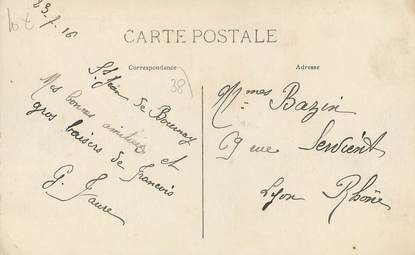 23-7-16
CARTE POSTALE
Correspondance
Adresse
38
St Jean de Bournay
Mes bonnes amitiés et
gros baisers de Francois
G. Faure
Mmes Bazin
69 rue Servient
Lyon Rhône